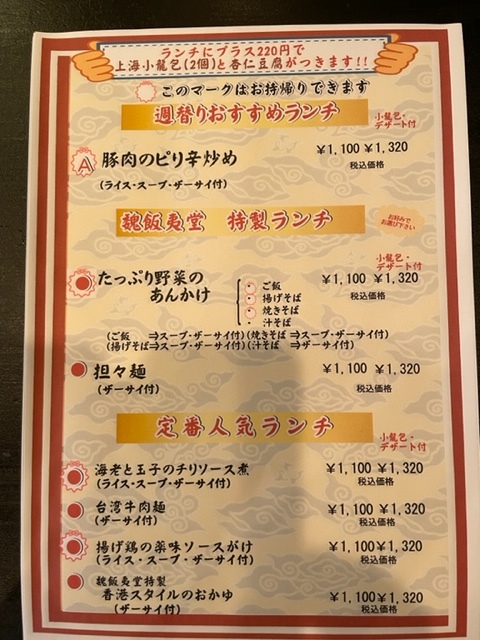 ランチにプラス220円で
上海小龍包(2個)と杏仁豆腐がつきます!!
このマークはお持帰りできます
週替りおすすめランチ
小龍包・
デザート付
A 豚肉のピリ辛炒め ¥1,100 ¥1,320
税込価格
(ライス・スープ・ザーサイ付)
魏飯夷堂 特製ランチ
お好みで
お選び下さい
小龍包・
デザート付
たっぷり野菜の
あんかけ
¥1,100 ¥1,320
税込価格
ご飯
揚げそば
焼きそば
・ 汁そば
(ご飯 ⇒スープ・ザーサイ付)(焼きそば ⇒スープ・ザーサイ付)
(揚げそば⇒スープ・ザーサイ付)(汁そば ⇒ザーサイ付)
担々麺 ¥1,100 ¥1,320
(ザーサイ付) 税込価格
定番人気ランチ
小龍包・
デザート付
海老と玉子のチリソース煮 ¥1,100 ¥1,320
(ライス・スープ・ザーサイ付) 税込価格
台湾牛肉麺 ¥1,100 ¥1,320
(ザーサイ付) 税込価格
揚げ鶏の薬味ソースがけ ¥1,100 ¥1,320
(ライス・スープ・ザーサイ付) 税込価格
魏飯夷堂特製
香港スタイルのおかゆ ¥1,100 ¥1,320
(ザーサイ付) 税込価格